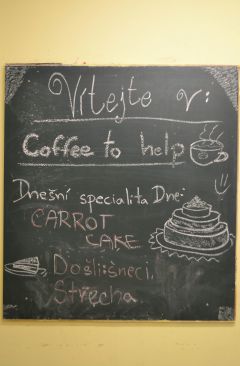 Vítejte v:
Coffee to help
Dnešní specialita Dne:
CARROT
CAKE
Došli šneci
Střecha